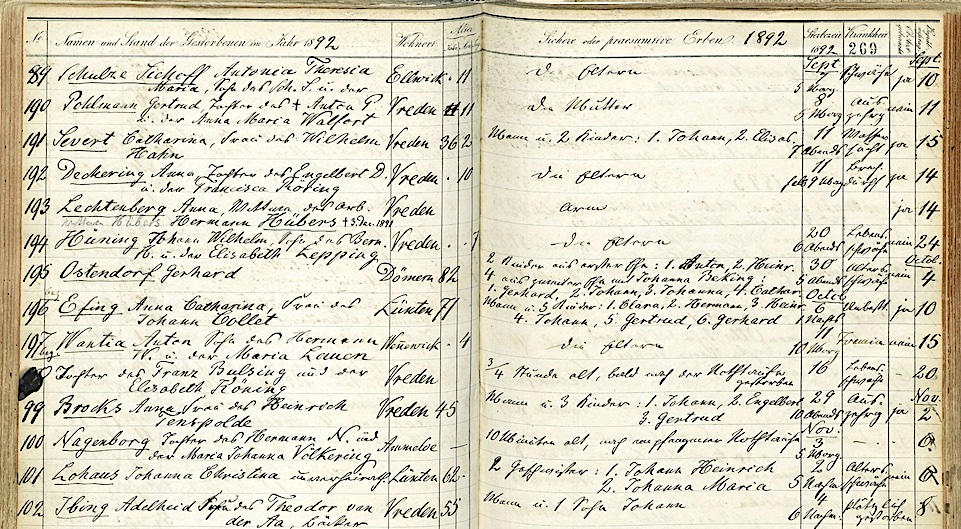 No Namen und Stand der Gestorbenen im Jahr 1892 Wohnort Alter Sichere oder praesumtive Erben 1892 Sterbezeit 1892 Krankheit 269
Sept Sept.
89 Schulze Siehoff Antonia Theresia Ellwick . 11 Die Eltern 5 Morg Schwäche ja 10
Maria, des Sch. S. u. der
190 Pohlmann Gertrud Tochter des + Anton P Vreden 11 Die Mutter 8 Aus nein 11
u. der Anna Maria Walfort 5 Morg zehrg
191 Severt Catharina, Frau des Wilhelm Vreden 36 2 Mann u. 2 Kinder: 1. Johann, 2. Elisab. 11 Wasser ja 15
Hahn 7 Abends sucht
192 Deckering Anna, Tochter des Engelbert D. Vreden . 10 Die Eltern 11 ja 14
u. der Francisca Röring 9 Morg
193 Lechtenberg Anna, Wittwe des Arb. Vreden Arm ja 14
Hermann Hübers + 3 Dec. 1891
194 Hüning Johann Wilhelm, Sohn des Bern. Vreden . . 7 Die Eltern 20 Lebens nein 24
H. u. der Elisabeth Lepping 6 Abends schwäche Octob.
195 Ostendorf Gerhard Dömern 82 2 Kinder aus erster Ehe: 1. Anton, 2. Heinr. 30 Alters nein 4
4 aus zweiter Ehe mit Johanna Beking: 5 Abends schwäche
1. Gerhard, 2. Johann, 3. Johanna, 4. Cathar. Octob
196 Efing Anna Catharina, Frau des Lünten 71 Mann u. 6 Kinder: 1. Clara, 2. Hermann, 3. Heinr. 6 ja 10
Johann Collet 4. Johann, 5. Gertrud, 6. Gerhard 1 Nachts
197 Wantia Anton Sohn des Hermann Wennewick . 4 Die Eltern 11 nein 15
W. u. der Maria Lauen 10 Morg
Tochter des Franz Bulsing und der Vreden 3/4 Stunde alt, bald nach der Nothtaufe 16 Lebens - 20
Elisabeth Röning gestorben schwäche
99 Brocks Anna Frau des Heinrich Vreden 45 Mann u. 3 Kinder: 1. Johann, 2. Engelbert 29 Aus ja Nov. 2
Tenspolde 3. Gertrud 10 Abends zehrg
Nov.
100 Nagenborg Tochter des Hermann N. und Ammeloe 10 Minuten alt, nach empfangener Nothtaufe 3 - - 6
der Maria Johanna Vilkering 5 Morg.
101 Lohaus Johanna Christina unverheirath Lünten 62 2 Geschwister: 1. Johann Heinrich 2 Alters
2. Johanna Maria 5 Nachm schwäche
102 Ibing Adelheid Frau des Theodor van Vreden 55 Mann u. 1 Sohn Johann 4 Plötzlich 8
der Aa, Bäcker 6 Nachm. gestorben